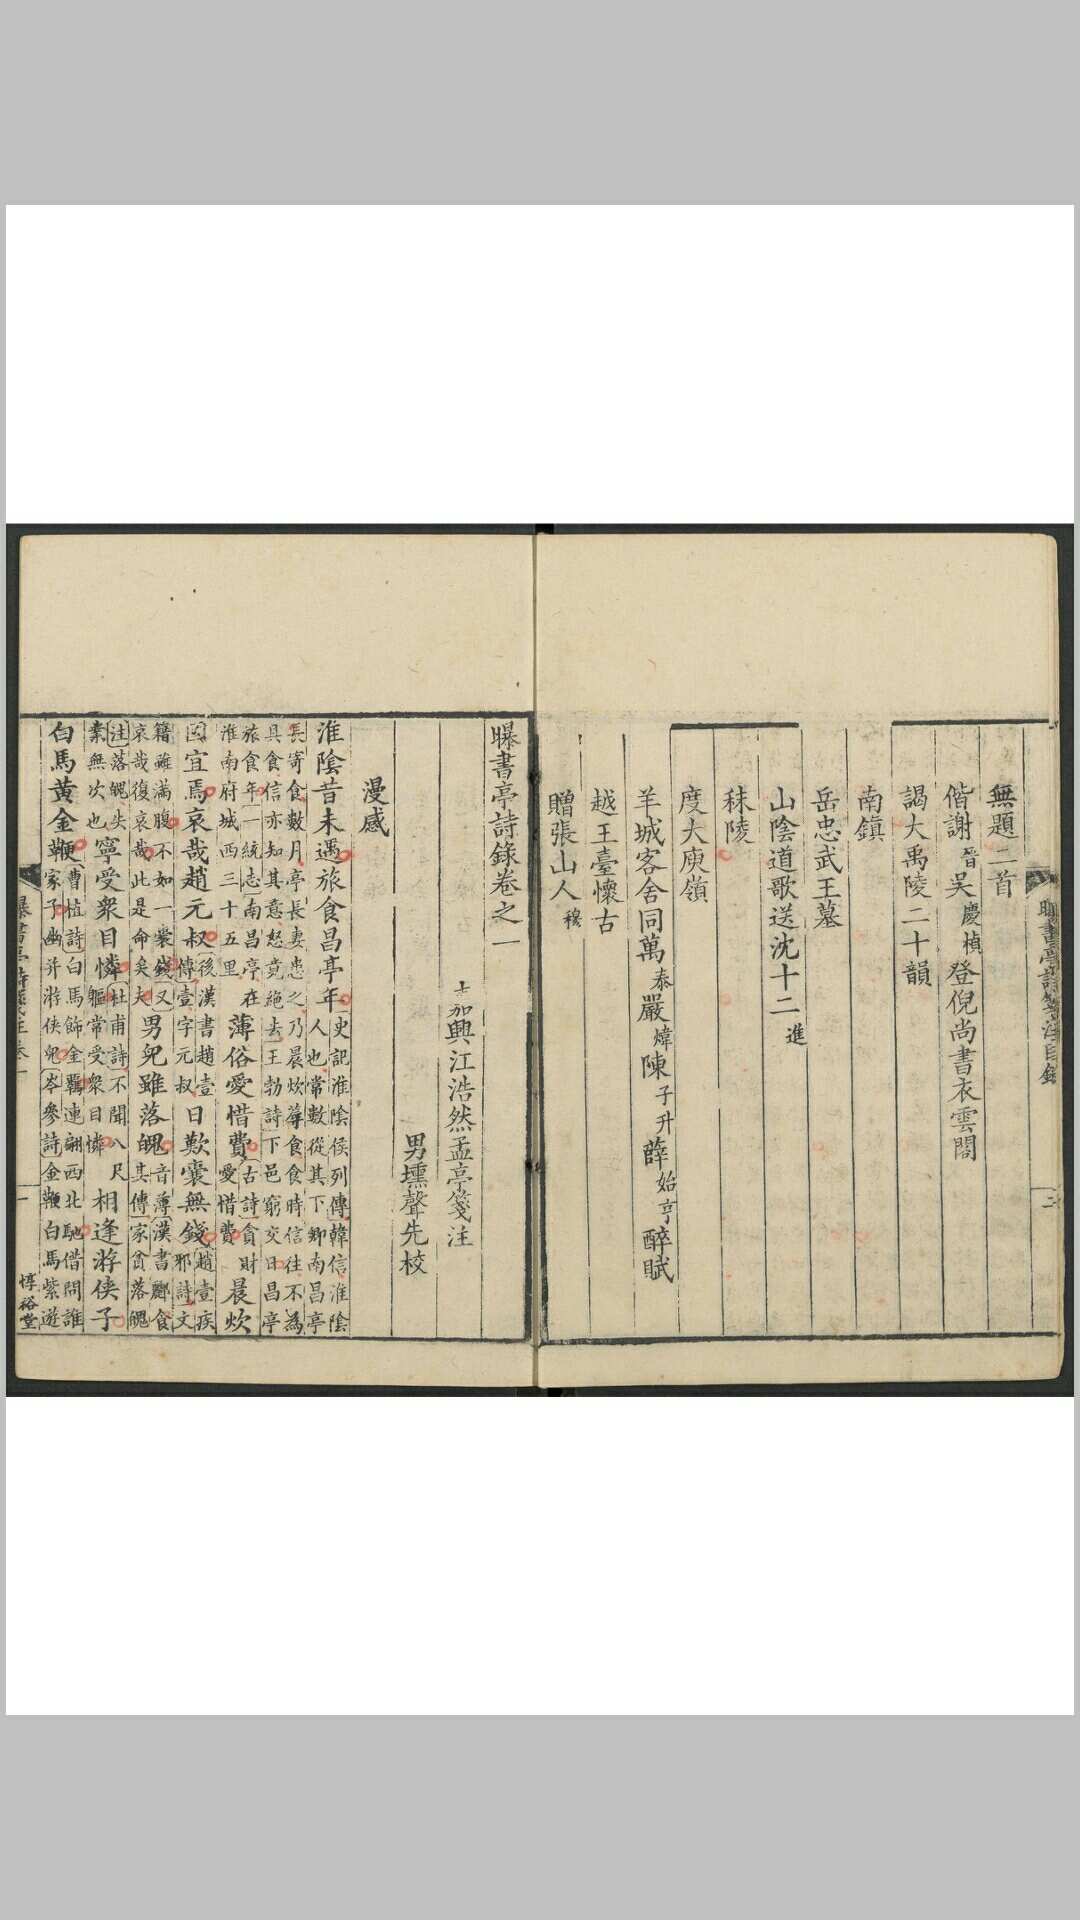 曝書亭詩錄箋注目錄
二
無題二首
偕謝晉吳慶楨登倪尚書衣雲閣
謁大禹陵二十韻
南鎮
岳忠武王墓
山陰道歌送沈十二進
秣陵
度大庾嶺
羊城客舍同萬泰嚴煒陳子升薛始亨醉賦
越王臺懷古
贈張山人穆
曝書亭詩錄卷之一
嘉興江浩然孟亭箋注
男壎聲先校
漫感
淮陰昔未遇旅食昌亭年史記淮陰侯列傳韓信淮陰人也常數從其下鄉南昌亭
長寄食數月亭長妻患之乃晨炊蓐食食時信往不為具食信亦知其意怒竟絕去王勃詩下邑窮交日昌亭
旅食年一統志南昌亭在淮南府城西三十五里薄俗愛惜費古詩貪財愛惜費晨炊
因宜焉哀哉趙元叔後漢書趙壹傳壹字元叔日歎囊無錢趙壹疾邪詩文
籍雖滿腹不如一囊錢又哀哉復哀哉此是命矣夫男兒雖落魄音薄漢書酈食其傳家貧落魄
注落魄失業無次也寧受衆目憐杜甫詩不聞八尺軀常受衆目憐相逢游俠子
白馬黃金鞭曹植詩白馬飾金羈連翩西北馳借問誰家子幽并游俠兒岑參詩金鞭白馬紫遊
一
惇裕堂